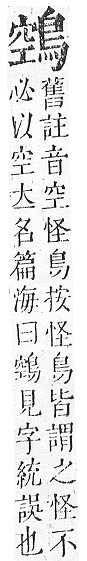 鵼
舊註音空怪鳥按怪鳥皆謂之怪不
必以空大名篇海曰鵼見字統誤也